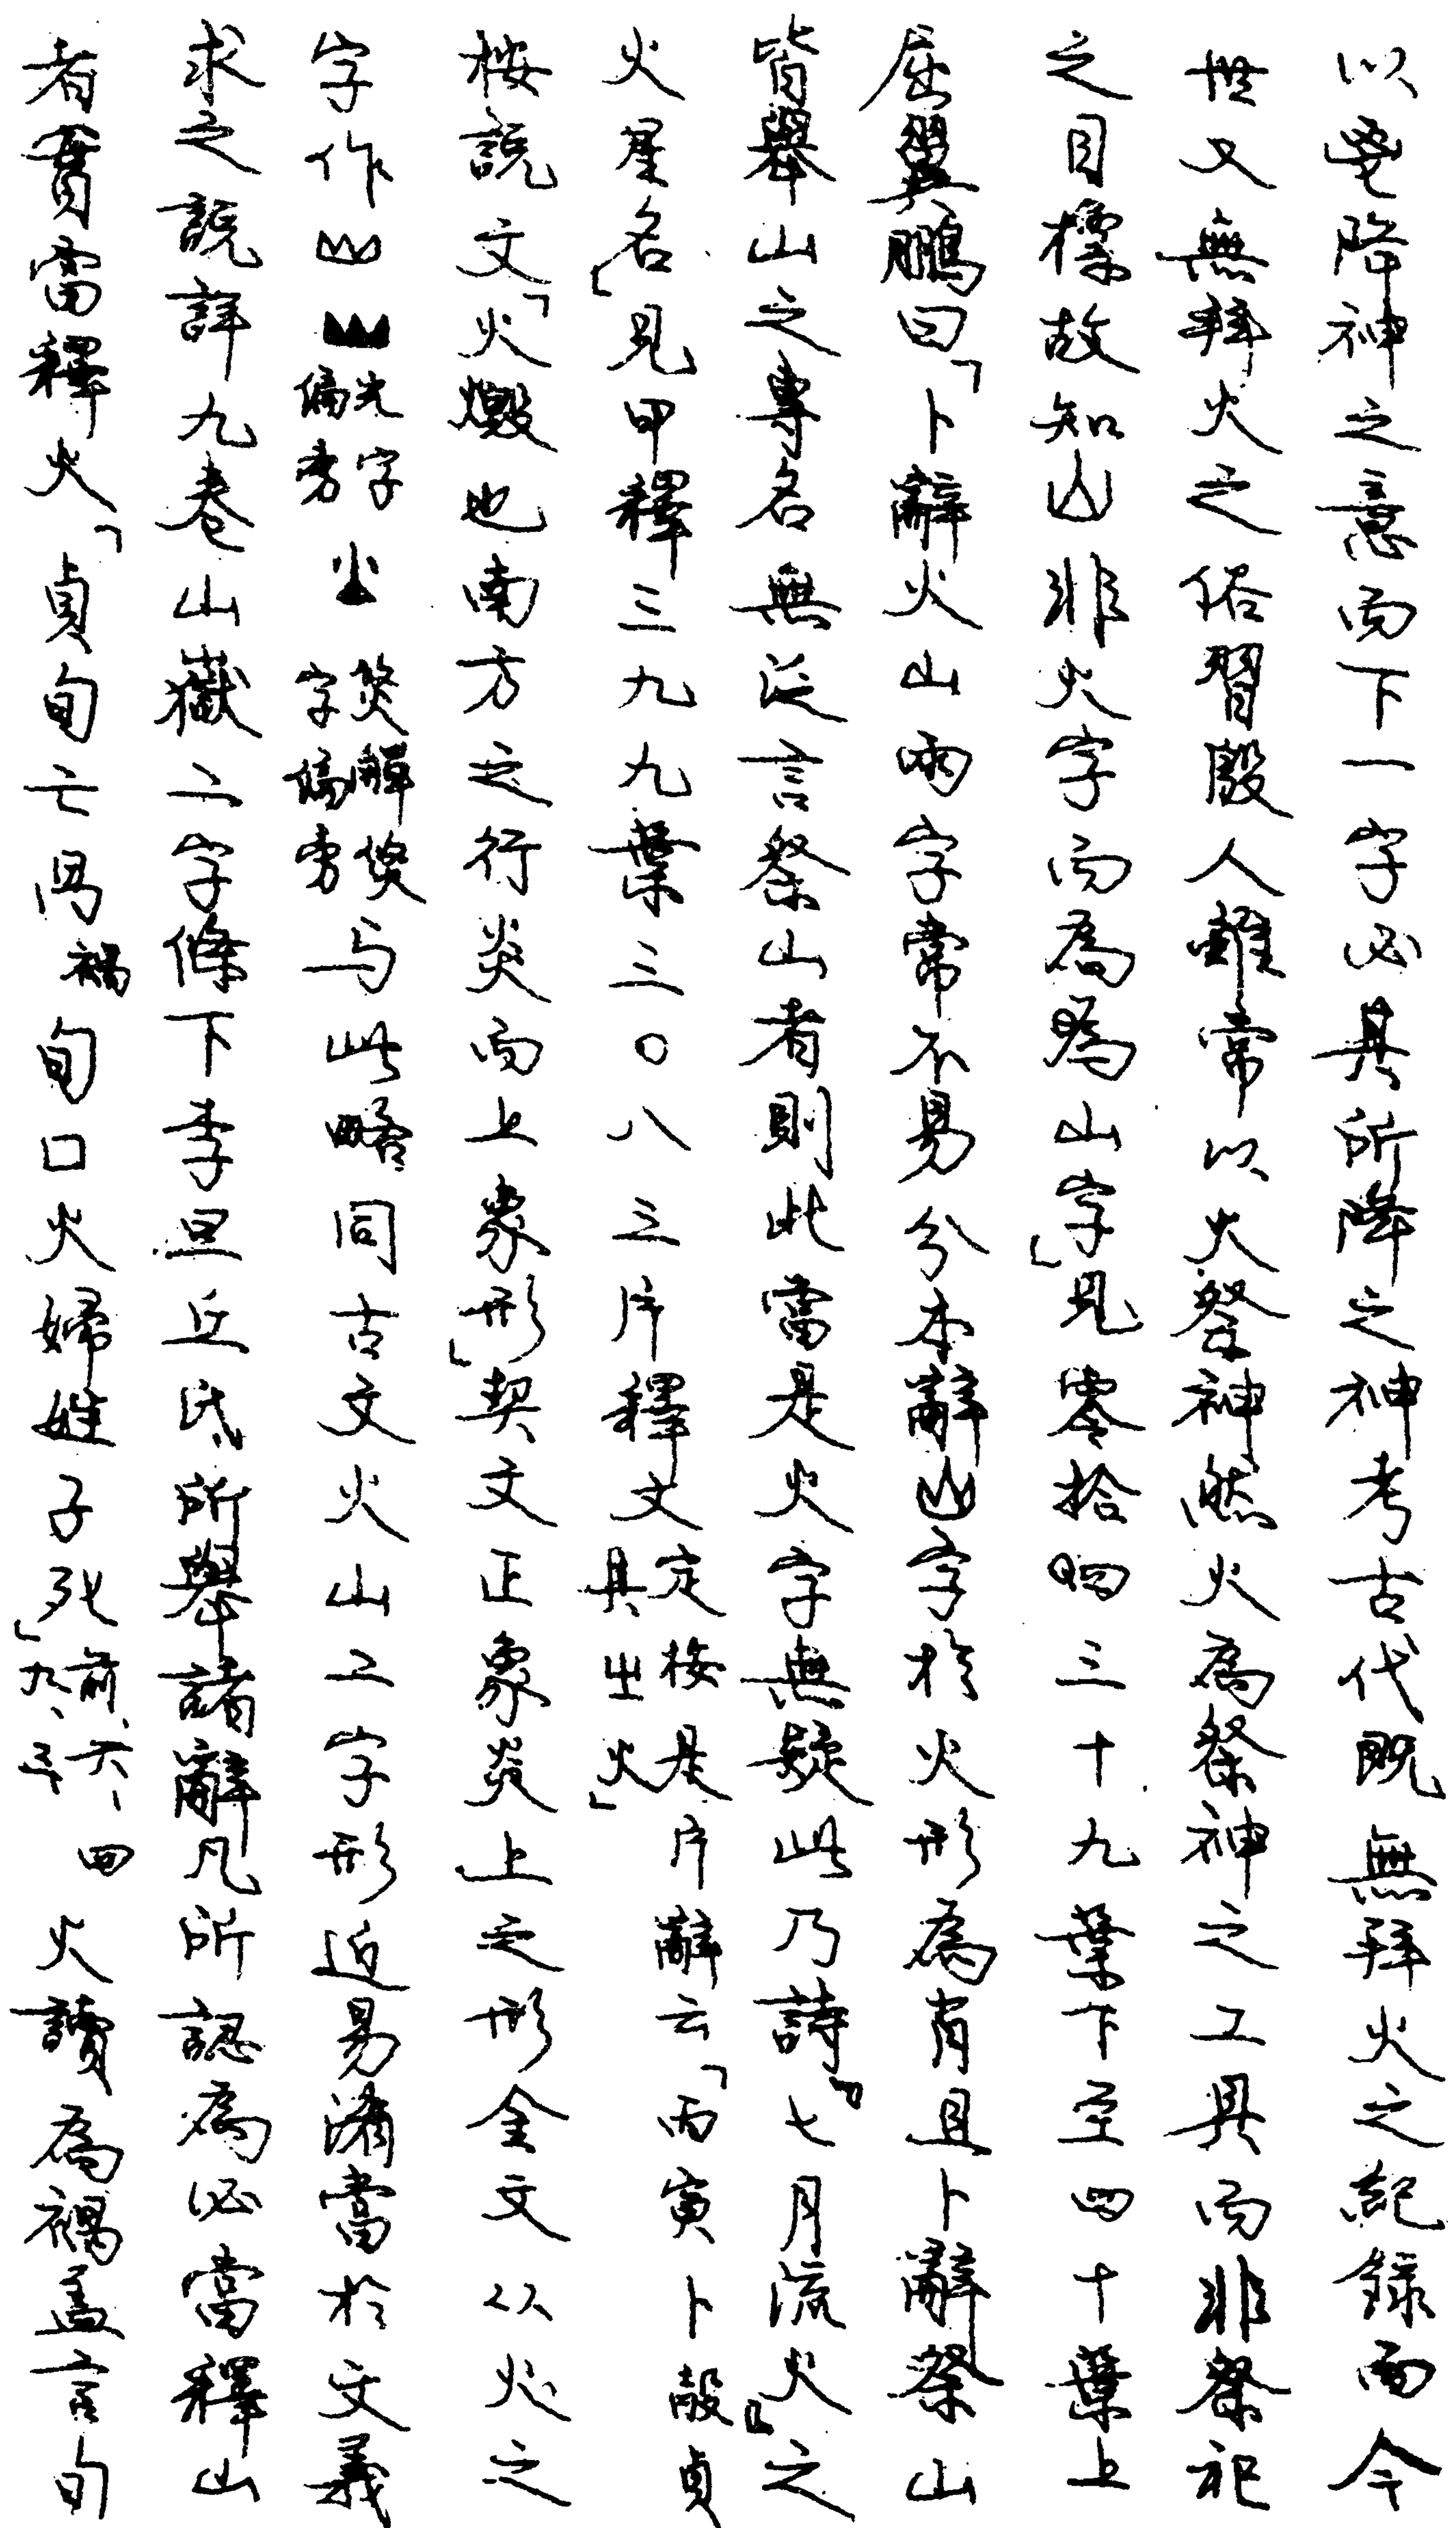 以鬯降神之意而下一字必其所降之神考古代既無拜火之紀錄而今
世又無拜火之俗習殷人雖常以火祭神然火為祭神之工具而非祭祀
之目標故知山非火字而為為山字」見零拾四三十九葉下至四十葉上
屈翼鵬曰「卜辭火山兩字常不易分本辭字於火形為肖且卜辭祭山
皆舉山之專名無泛言祭山者則此當是火字無疑此乃詩『七月流火』之
火星名」見甲釋三九九葉三〇八三片釋文定按是片辭云「丙寅卜㱿貞其㞢火」
按說文「火燬也南方之行炎而上象形」契文正象炎上之形金文从火之
字作光字偏旁 焚𤏻燹字偏旁与此略同古文火山二字形近易淆當於文義
求之說詳九卷山嶽二字條下李旦丘氏所舉諸辭凡所認為必當釋山
者實當釋火「貞旬亡𡆥禍旬囗火婦姓子死」前、六、四九、三火讀為禍蓋言旬